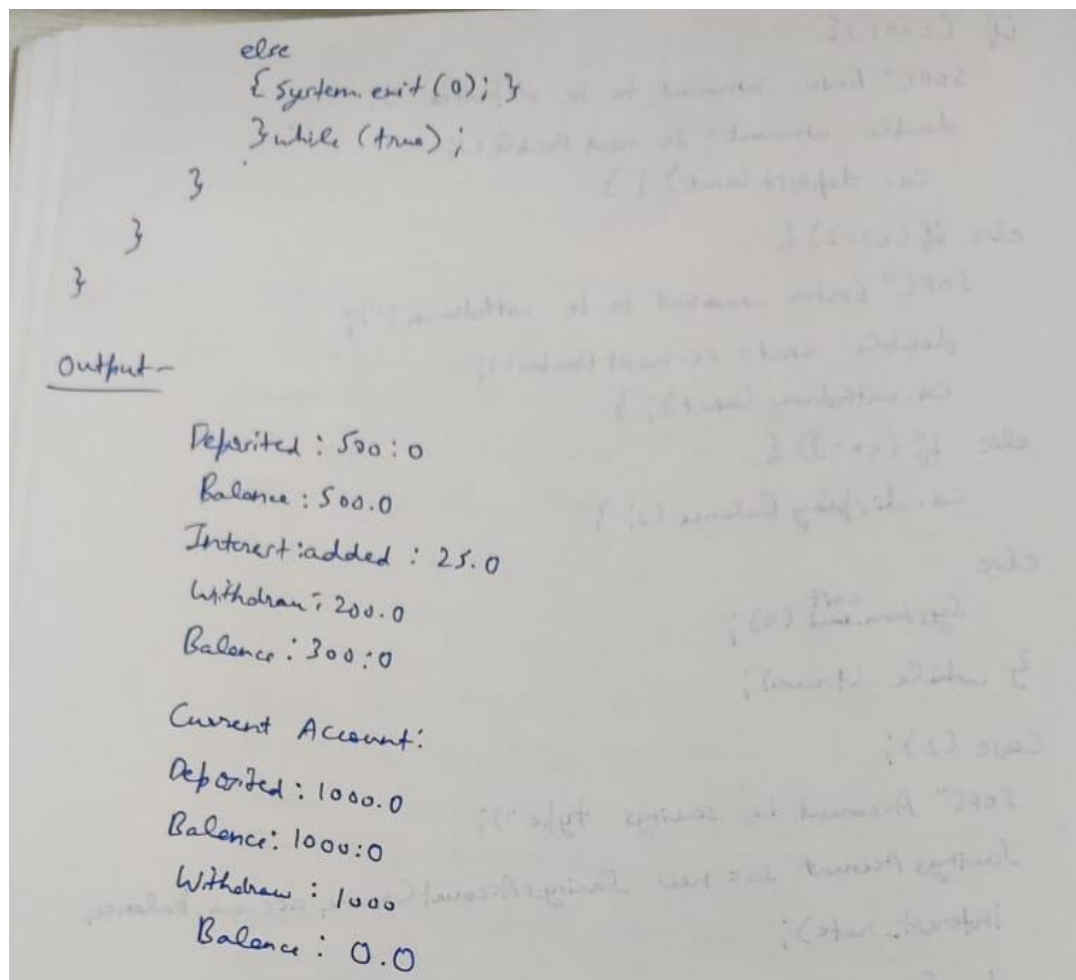 else
{ System.exit(0); }
} while (true);
}
}
}
Output-
Deposited : 500:0
Balance : 500.0
Interest:added : 25.0
Withdraw: 200.0
Balance : 300:0
Current Account:
Deposited : 1000.0
Balance: 1000:0
Withdraw : 1000
Balance : 0.0